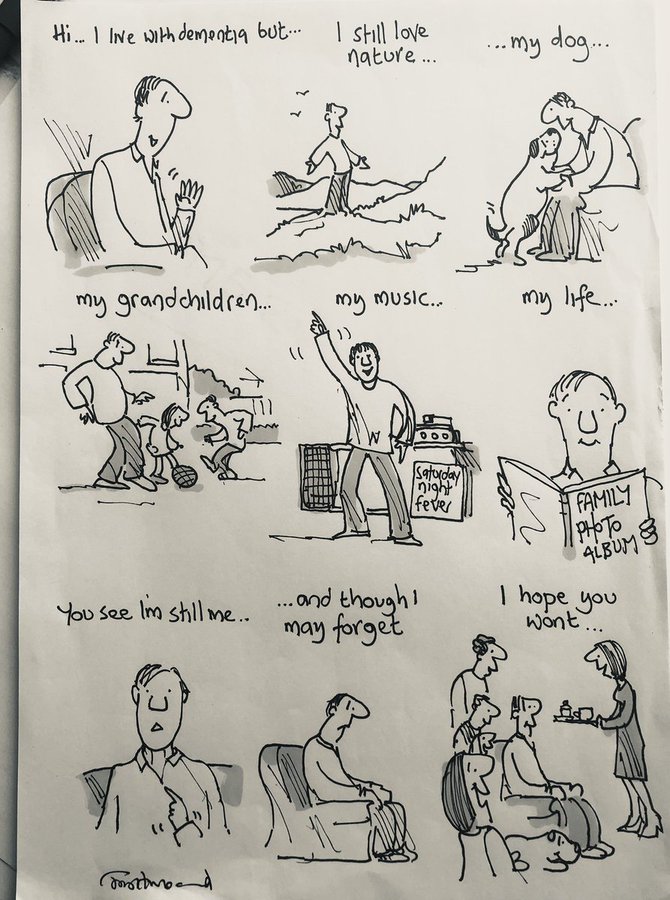 Hi... I live with dementia but...
I still love
nature...
...my dog...
my grandchildren...
my music...
Saturday
night
fever
my life...
FAMILY
PHOTO
ALBUM
You see I'm still me...
...and though I
may forget
I hope you
wont...